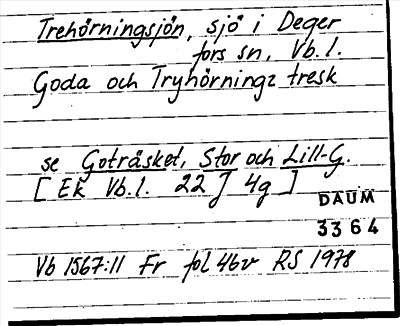 Trehörningsjön, sjö i Deger
fors sn, Vb.l.
Goda och Tryhörningz tresk
se Goträsket, Stor och Lill-G.
[ Ek Vb.l. 22 J 4g ]
DAUM
3364
Vb 1567:11 Fr fol 46v RS 1978